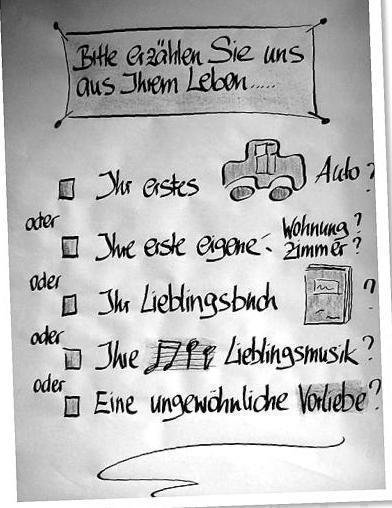 Bitte erzählen Sie uns
aus Ihrem Leben.....
Ihr erstes Auto?
oder
Ihre erste eigene Wohnung?
Zimmer?
oder
Ihr Lieblingsbuch ?
oder
Ihre Lieblingsmusik?
oder
Eine ungewöhnliche Vorliebe?